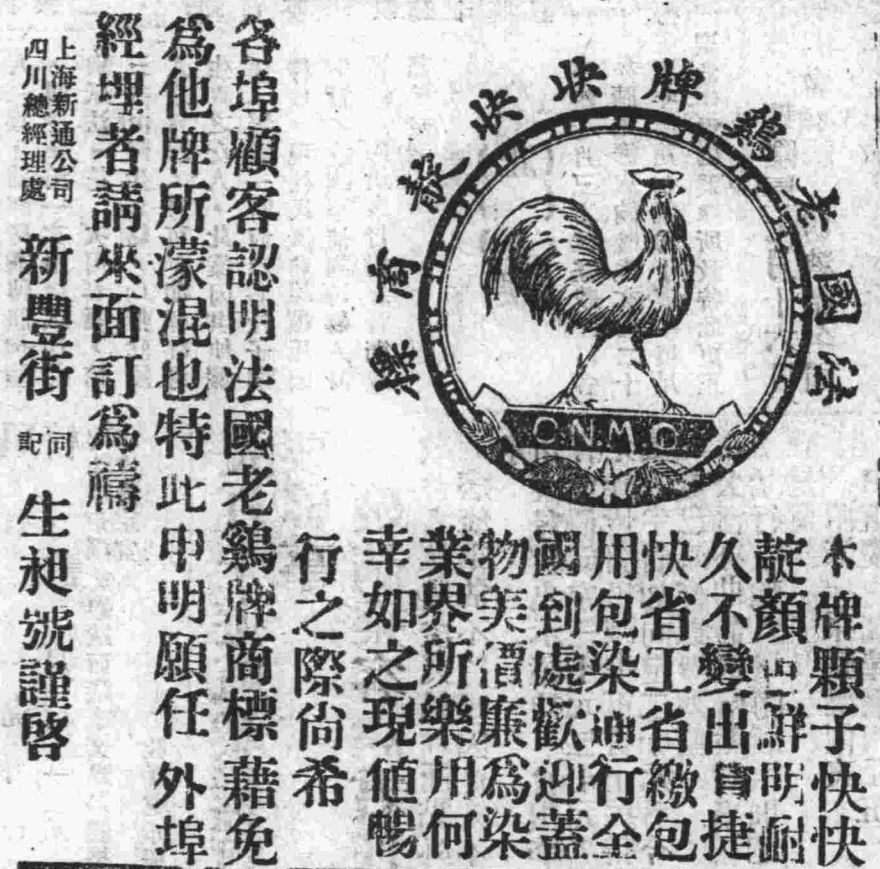 法國老鷄牌快快靛商標
C.N.M.C
本牌顆子快快
靛顏色鮮明耐
久不變出貨捷
快省工省繳包
用包染通行全
國到處歡迎蓋
物美價廉為染
業界所樂用何
幸如之現值暢
行之際尙希
各埠顧客認明法國老鷄牌商標藉免
為他牌所濛混也特此申明願任外埠
經理者請來面訂為禱
上海新通公司
四川總經理處
新豐街
同記
生昶號謹啓